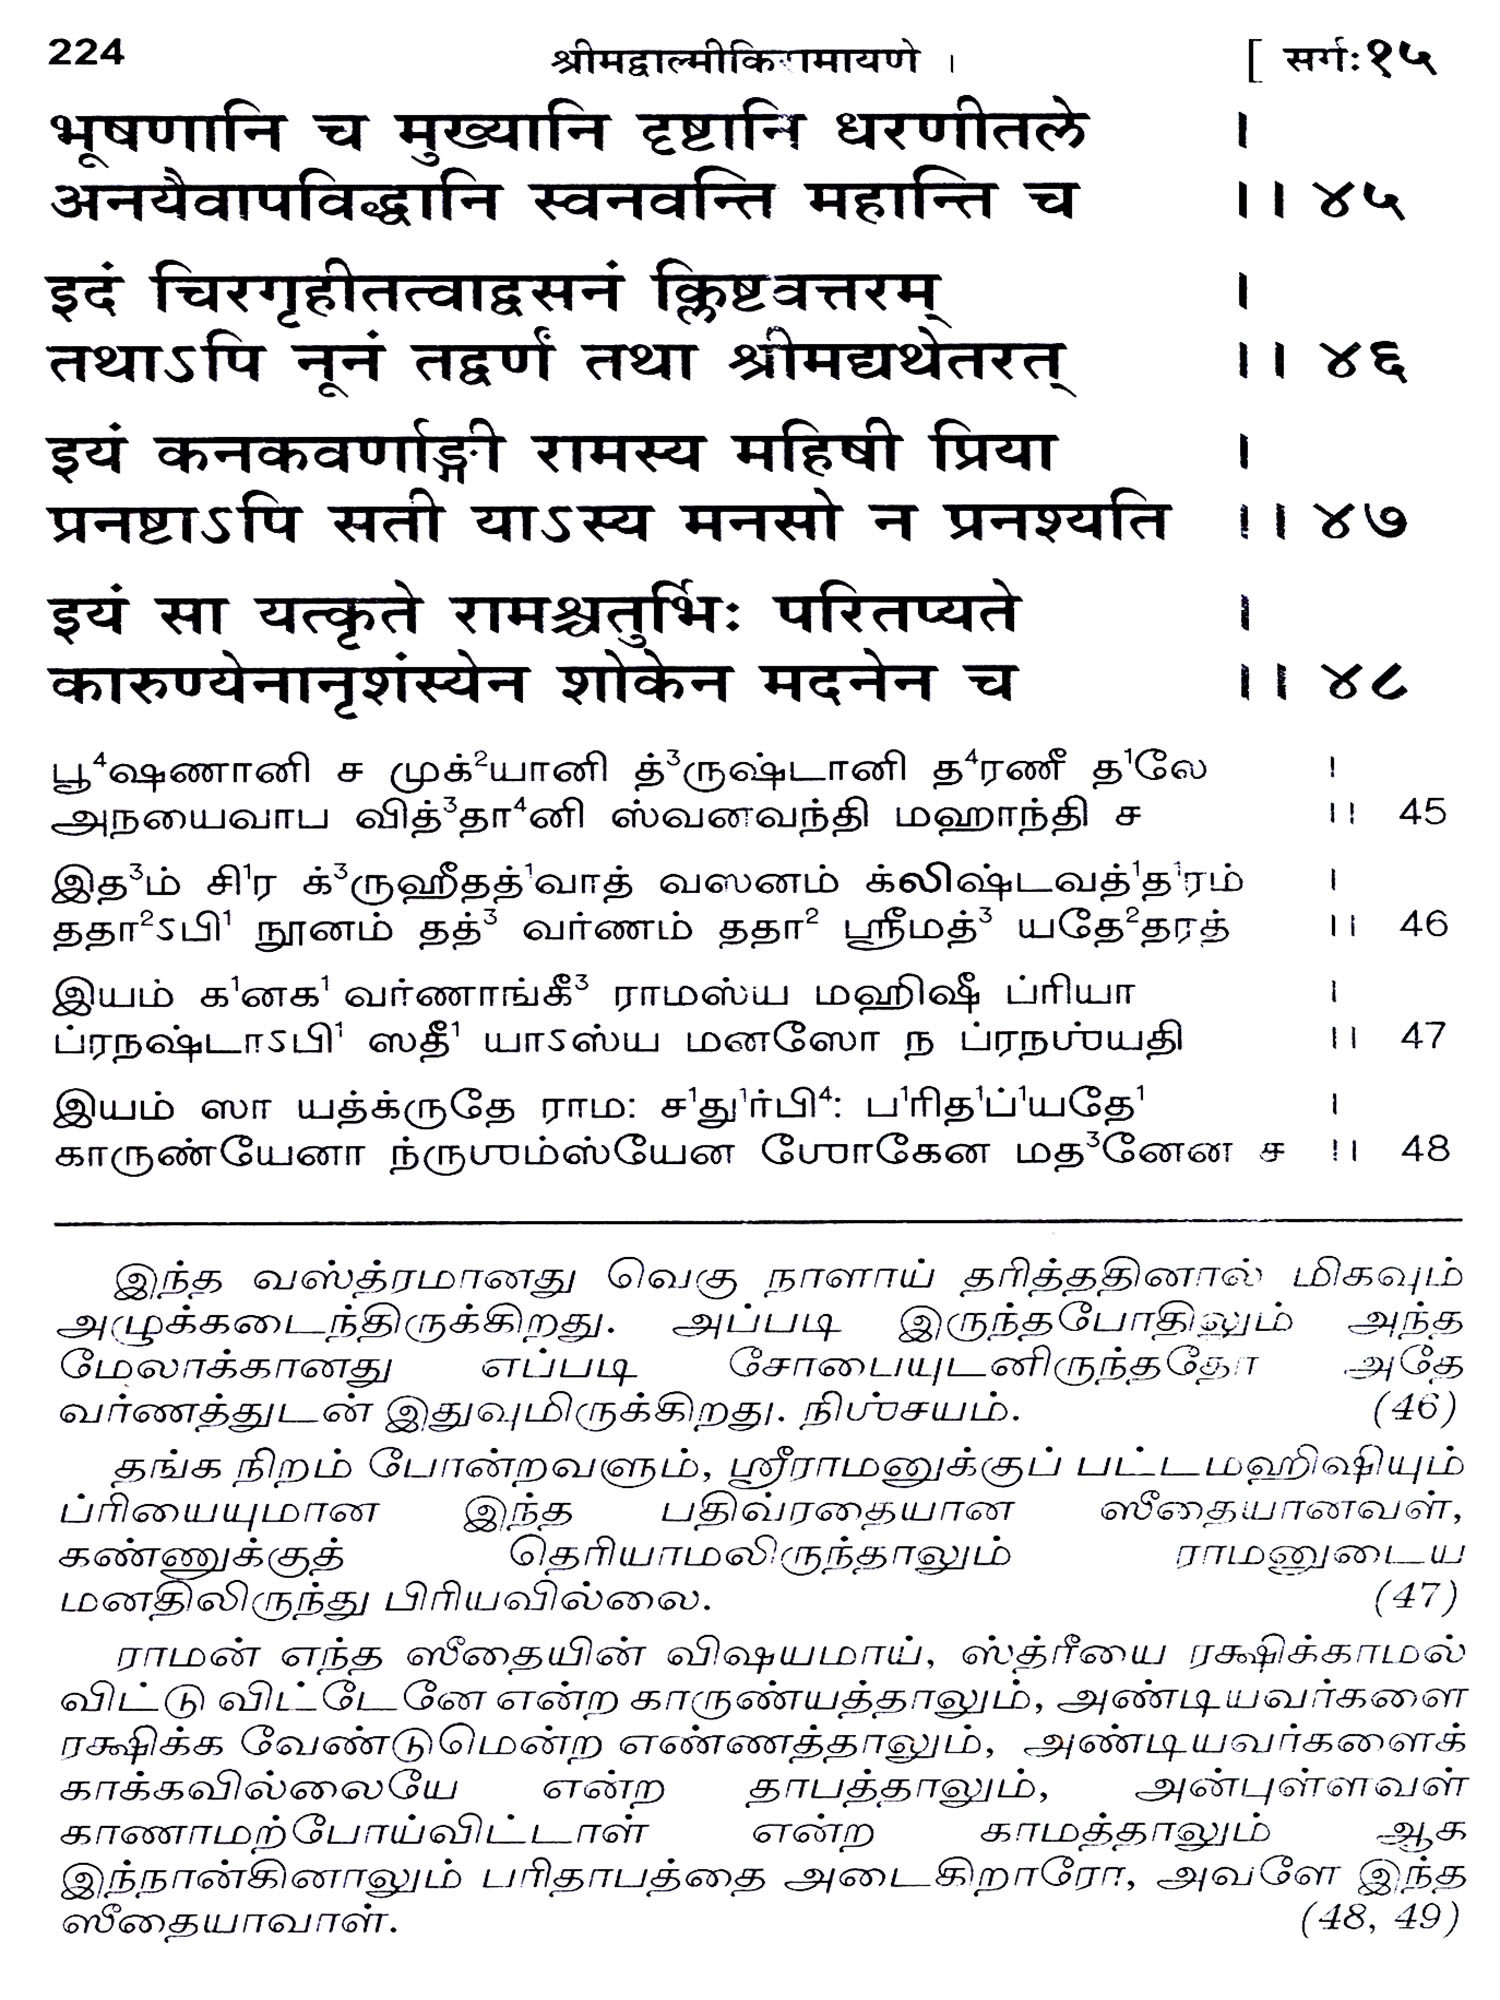 224 श्रीमद्वाल्मीकिरामायणे । [ सर्गः१५
भूषणानि च मुख्यानि दृष्टानि धरणीतले ।
अनयैवापविद्धानि स्वनवन्ति महान्ति च ।। ४५
इदं चिरगृहीतत्वाद्वसनं क्लिष्टवत्तरम् ।
तथाऽपि नूनं तद्वर्णं तथा श्रीमद्यथेतरत् ।। ४६
इयं कनकवर्णाङ्गी रामस्य महिषी प्रिया ।
प्रनष्टाऽपि सती याऽस्य मनसो न प्रनश्यति ।। ४७
इयं सा यत्कृते रामश्चतुर्भिः परितप्यते ।
कारुण्येनानृशंस्येन शोकेन मदनेन च ।। ४८
பூ⁴ஷணானி ச முக்²யானி த்³ருஷ்டானி த⁴ரணீ த¹லே ।
அநயைவாப வித்³தா⁴னி ஸ்வனவந்தி மஹாந்தி ச ।। 45
இத³ம் சி¹ர க்³ருஹீதத்¹வாத் வஸனம் க்லிஷ்டவத்¹த¹ரம் ।
ததா²ऽபி¹ நூனம் தத்³ வர்ணம் ததா² ஸ்ரீமத்³ யதே²தரத் ।। 46
இயம் க¹னக¹ வர்ணாங்கீ³ ராமஸ்ய மஹிஷீ ப்ரியா ।
ப்ரநஷ்டாऽபி¹ ஸதீ¹ யாऽஸ்ய மனஸோ ந ப்ரநஶ்யதி ।। 47
இயம் ஸா யத்க்ருதே ராம: ச¹து¹ர்பி⁴: ப¹ரித¹ப்¹யதே¹ ।
காருண்யேனா ந்ருஶம்ஸ்யேன ஶோகேன மத³னேன ச ।। 48
இந்த வஸ்த்ரமானது வெகு நாளாய் தரித்ததினால் மிகவும்
அழுக்கடைந்திருக்கிறது. அப்படி இருந்தபோதிலும் அந்த
மேலாக்கானது எப்படி சோபையுடனிருந்ததோ அதே
வர்ணத்துடன் இதுவுமிருக்கிறது. நிஶ்சயம். (46)
தங்க நிறம் போன்றவளும், ஸ்ரீராமனுக்குப் பட்டமஹிஷியும்
ப்ரியையுமான இந்த பதிவ்ரதையான ஸீதையானவள்,
கண்ணுக்குத் தெரியாமலிருந்தாலும் ராமனுடைய
மனதிலிருந்து பிரியவில்லை. (47)
ராமன் எந்த ஸீதையின் விஷயமாய், ஸ்த்ரீயை ரக்ஷிக்காமல்
விட்டு விட்டேனே என்ற காருண்யத்தாலும், அண்டியவர்களை
ரக்ஷிக்க வேண்டுமென்ற எண்ணத்தாலும், அண்டியவர்களைக்
காக்கவில்லையே என்ற தாபத்தாலும், அன்புள்ளவள்
காணாமற்போய்விட்டாள் என்ற காமத்தாலும் ஆக
இந்நான்கினாலும் பரிதாபத்தை அடைகிறாரோ, அவளே இந்த
ஸீதையாவாள். (48, 49)